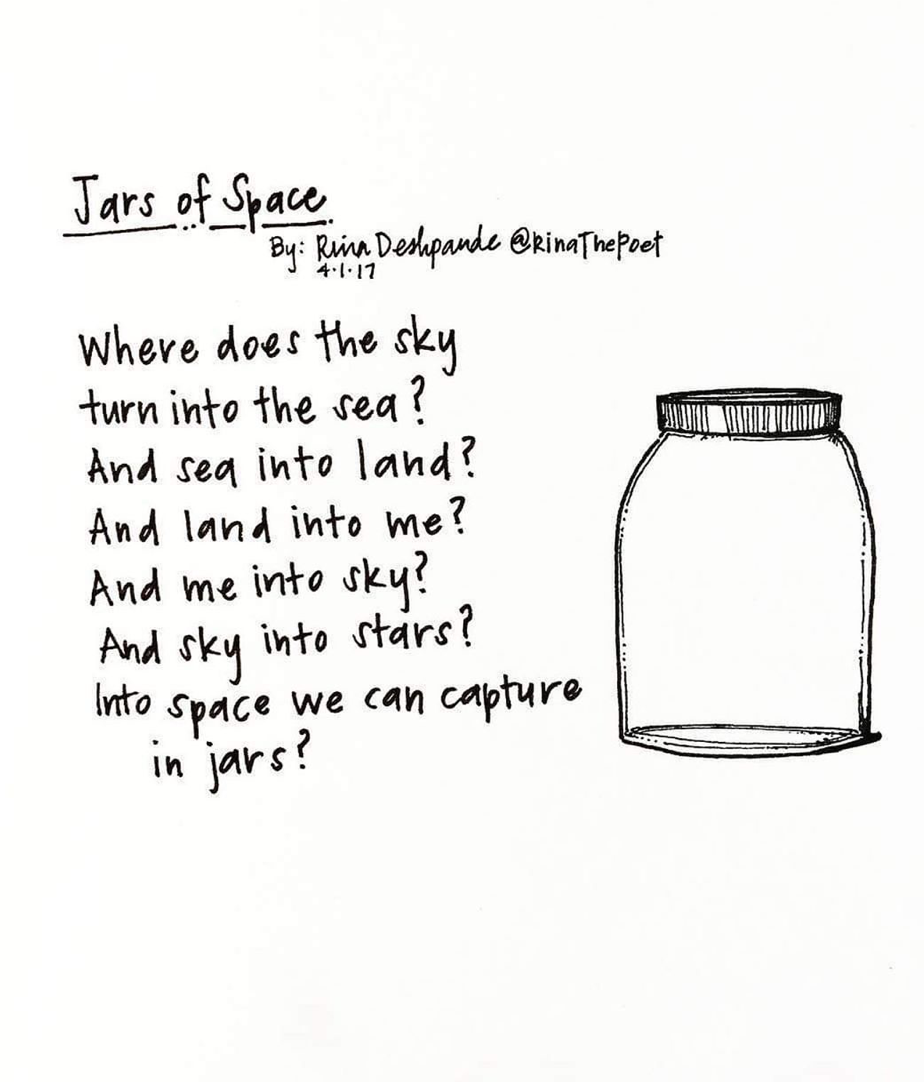 Jars of Space
By: Rina Deshpande @RinaThePoet
4.1.17
Where does the sky
turn into the sea?
And sea into land?
And land into me?
And me into sky?
And sky into stars?
Into space we can capture
in jars?